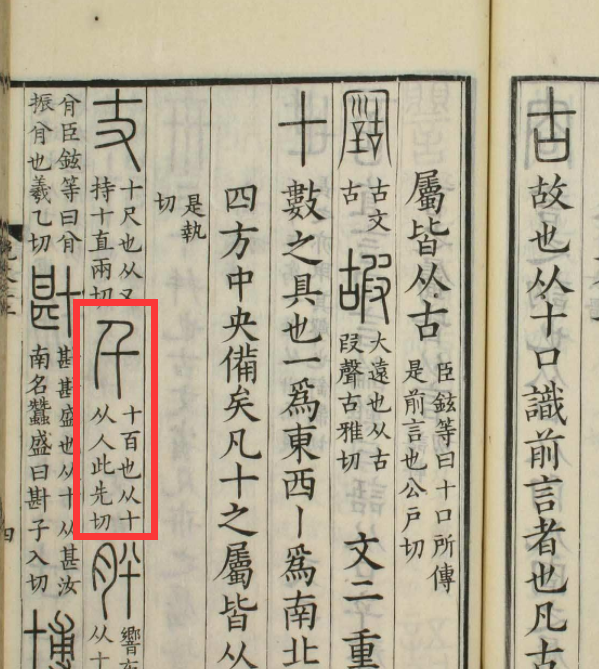 古故也从十口識前言者也凡古
屬皆从古
臣鉉等曰十口所傳
是前言也公戶切
古文
古
嘏
大遠也从古
叚聲古雅切
文二 重
十數之具也一爲東西丨爲南北
四方中央備矣凡十之屬皆从
是執
切
丈
十尺也从又
持十直兩切
千
十百也从十
从人此先切
肸
響布
从十
䏌臣鉉等曰䏌
振䏌也羲乙切
卙
卙卙盛也从十从甚汝
南名蠶盛曰卙子入切
博
四